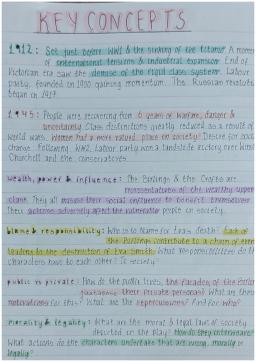 KEY CONCEPTS
1912: Set just before WW1 & the sinking of the titanic. A moment
of international tensions & industrial expansion. End of
Victorian era saw the demise of the rigid class system. Labour
party, founded in 1900 gaining momentum. The Russian revolution
began in 1917.
1945: People were recovering from 6 years of warfare, danger &
uncertainty. Class distinctions greatly reduced as a result of
world wars. Women had a more valued place in society. Desire for social
change. Following WW2, Labour party won a landslide victory over Winston
Churchill and the conservatives.
wealth, power & influence: The Birlings & the Crofts are
representatives of the wealthy upper
class. They all misuse their social influence to benefit themselves.
Their actions adversely affect the vulnerable people in society.
blame & responsibility: Who is to blame for Eva's death? Each of
the Birlings contribute to a chain of events
leading to the destruction of Eva Smith. What responsibilities do the
characters have to each other? To society?
public vs private: How do the public lives, the facades of the Birlings
juxtapose their private personas? What are their
motivations for this? What are the repercussions? And for who?
morality & legality: What are the moral & legal laws of society
depicted in the play? How do they intertwine?
What actions do the characters undertake that are wrong, morally or
legally?